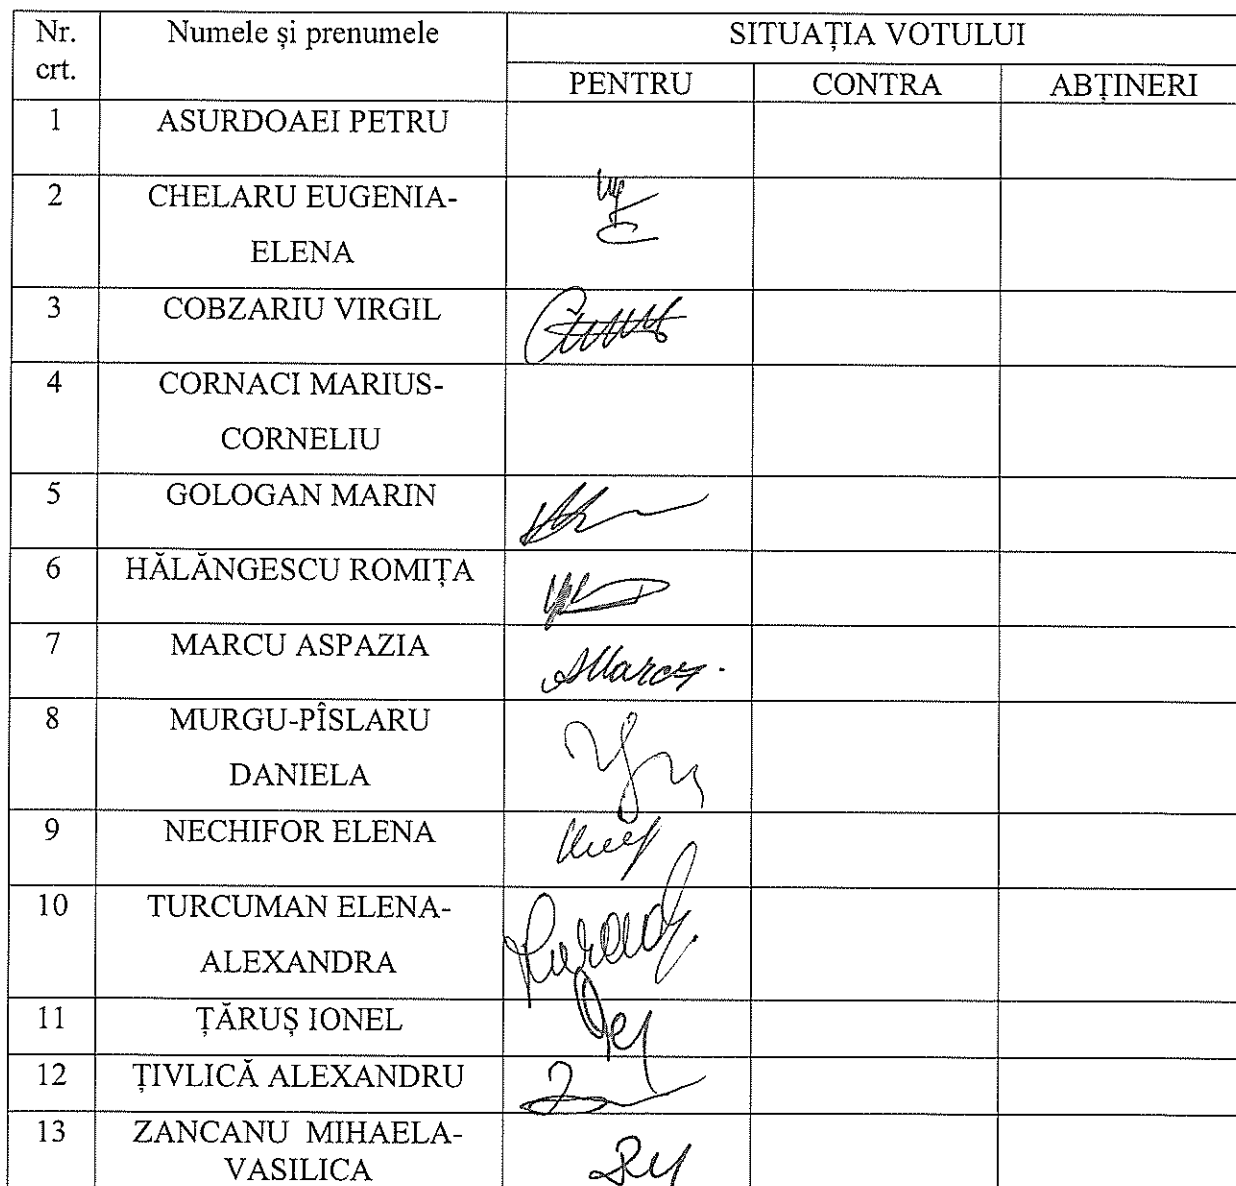 Nr. crt. Numele și prenumele SITUAȚIA VOTULUI
PENTRU CONTRA ABȚINERI
1 ASURDOAEI PETRU
2 CHELARU EUGENIA-
ELENA
3 COBZARIU VIRGIL
4 CORNACI MARIUS-
CORNELIU
5 GOLOGAN MARIN
6 HĂLĂNGESCU ROMIȚA
7 MARCU ASPAZIA AMarcu
8 MURGU-PÎSLARU
DANIELA
9 NECHIFOR ELENA
10 TURCUMAN ELENA-
ALEXANDRA
11 ȚĂRUȘ IONEL
12 ȚIVLICĂ ALEXANDRU
13 ZANCANU MIHAELA-
VASILICA